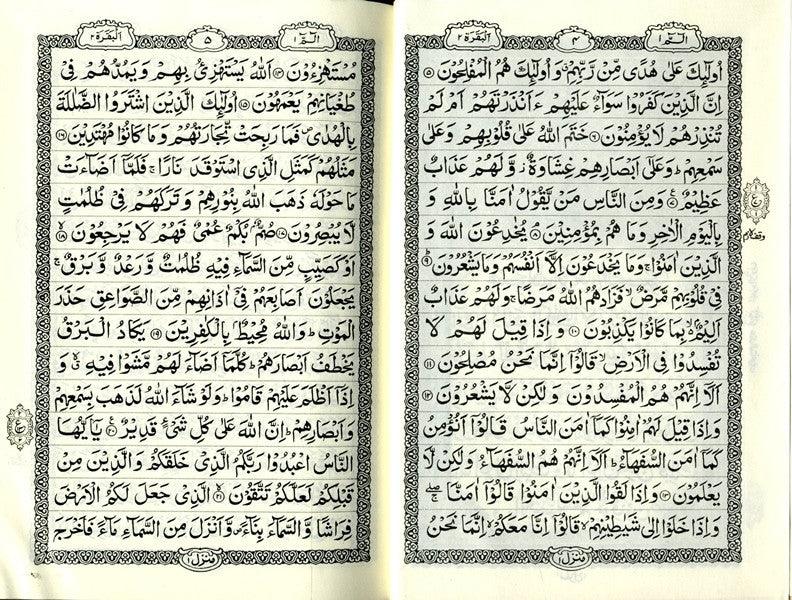 الٓمّٓ ١
٤
البقرة ٢
اُولٰٓئِكَ عَلٰى هُدًى مِّنْ رَّبِّهِمْ ۗ وَ اُولٰٓئِكَ هُمُ الْمُفْلِحُوْنَ ۵
اِنَّ الَّذِيْنَ كَفَرُوْا سَوَآءٌ عَلَيْهِمْ ءَاَنْذَرْتَهُمْ اَمْ لَمْ
تُنْذِرْهُمْ لَا يُؤْمِنُوْنَ ۶ خَتَمَ اللّٰهُ عَلٰى قُلُوْبِهِمْ وَعَلٰى
سَمْعِهِمْ ؕ وَعَلٰٓى اَبْصَارِهِمْ غِشَاوَةٌ ؗ وَّلَهُمْ عَذَابٌ
عَظِيْمٌ ۷ وَمِنَ النَّاسِ مَنْ يَّقُوْلُ اٰمَنَّا بِاللّٰهِ وَ
بِالْيَوْمِ الْاٰخِرِ وَمَا هُمْ بِمُؤْمِنِيْنَ ۸ يُخٰدِعُوْنَ اللّٰهَ وَ
الَّذِيْنَ اٰمَنُوْا ۚ وَمَا يَخْدَعُوْنَ اِلَّآ اَنْفُسَهُمْ وَمَا يَشْعُرُوْنَ ۹
فِيْ قُلُوْبِهِمْ مَّرَضٌ ۙ فَزَادَهُمُ اللّٰهُ مَرَضًا ۚ وَلَهُمْ عَذَابٌ
اَلِيْمٌۢ ۙ بِمَا كَانُوْا يَكْذِبُوْنَ ۱۰ وَاِذَا قِيْلَ لَهُمْ لَا
تُفْسِدُوْا فِي الْاَرْضِ ۙ قَالُوْٓا اِنَّمَا نَحْنُ مُصْلِحُوْنَ ۱۱
اَلَآ اِنَّهُمْ هُمُ الْمُفْسِدُوْنَ وَ لٰكِنْ لَّا يَشْعُرُوْنَ ۱۲
وَاِذَا قِيْلَ لَهُمْ اٰمِنُوْا كَمَآ اٰمَنَ النَّاسُ قَالُوْٓا اَنُؤْمِنُ
كَمَآ اٰمَنَ السُّفَهَآءُ ؕ اَلَآ اِنَّهُمْ هُمُ السُّفَهَآءُ وَلٰكِنْ لَّا
يَعْلَمُوْنَ ۱۳ وَاِذَا لَقُوا الَّذِيْنَ اٰمَنُوْا قَالُوْٓا اٰمَنَّا ۚۖ
وَاِذَا خَلَوْا اِلٰى شَيٰطِيْنِهِمْ ۙ قَالُوْٓا اِنَّا مَعَكُمْ ۙ اِنَّمَا نَحْنُ
منزل ١
الٓمّٓ ١
٥
البقرة ٢
مُسْتَهْزِءُوْنَ ۱۴ اَللّٰهُ يَسْتَهْزِئُ بِهِمْ وَيَمُدُّهُمْ فِيْ
طُغْيَانِهِمْ يَعْمَهُوْنَ ۱۵ اُولٰٓئِكَ الَّذِيْنَ اشْتَرَوُا الضَّلٰلَةَ
بِالْهُدٰى ۪ فَمَا رَبِحَتْ تِّجَارَتُهُمْ وَمَا كَانُوْا مُهْتَدِيْنَ ۱۶
مَثَلُهُمْ كَمَثَلِ الَّذِي اسْتَوْقَدَ نَارًا ۚ فَلَمَّآ اَضَآءَتْ
مَا حَوْلَهٗ ذَهَبَ اللّٰهُ بِنُوْرِهِمْ وَتَرَكَهُمْ فِيْ ظُلُمٰتٍ
لَّا يُبْصِرُوْنَ ۱۷ صُمٌّۢ بُكْمٌ عُمْيٌ فَهُمْ لَا يَرْجِعُوْنَ ۱۸
اَوْ كَصَيِّبٍ مِّنَ السَّمَآءِ فِيْهِ ظُلُمٰتٌ وَّرَعْدٌ وَّبَرْقٌ ۚ
يَجْعَلُوْنَ اَصَابِعَهُمْ فِيْٓ اٰذَانِهِمْ مِّنَ الصَّوَاعِقِ حَذَرَ
الْمَوْتِ ؕ وَاللّٰهُ مُحِيْطٌۢ بِالْكٰفِرِيْنَ ۱۹ يَكَادُ الْبَرْقُ
يَخْطَفُ اَبْصَارَهُمْ ؕ كُلَّمَآ اَضَآءَ لَهُمْ مَّشَوْا فِيْهِ ۙ وَ
اِذَآ اَظْلَمَ عَلَيْهِمْ قَامُوْا ؕ وَلَوْ شَآءَ اللّٰهُ لَذَهَبَ بِسَمْعِهِمْ
وَاَبْصَارِهِمْ ؕ اِنَّ اللّٰهَ عَلٰى كُلِّ شَيْءٍ قَدِيْرٌ ۲۰ يٰٓاَيُّهَا
النَّاسُ اعْبُدُوْا رَبَّكُمُ الَّذِيْ خَلَقَكُمْ وَالَّذِيْنَ مِنْ
قَبْلِكُمْ لَعَلَّكُمْ تَتَّقُوْنَ ۲۱ الَّذِيْ جَعَلَ لَكُمُ الْاَرْضَ
فِرَاشًا وَّالسَّمَآءَ بِنَآءً ۪ وَّاَنْزَلَ مِنَ السَّمَآءِ مَآءً فَاَخْرَجَ
منزل ١